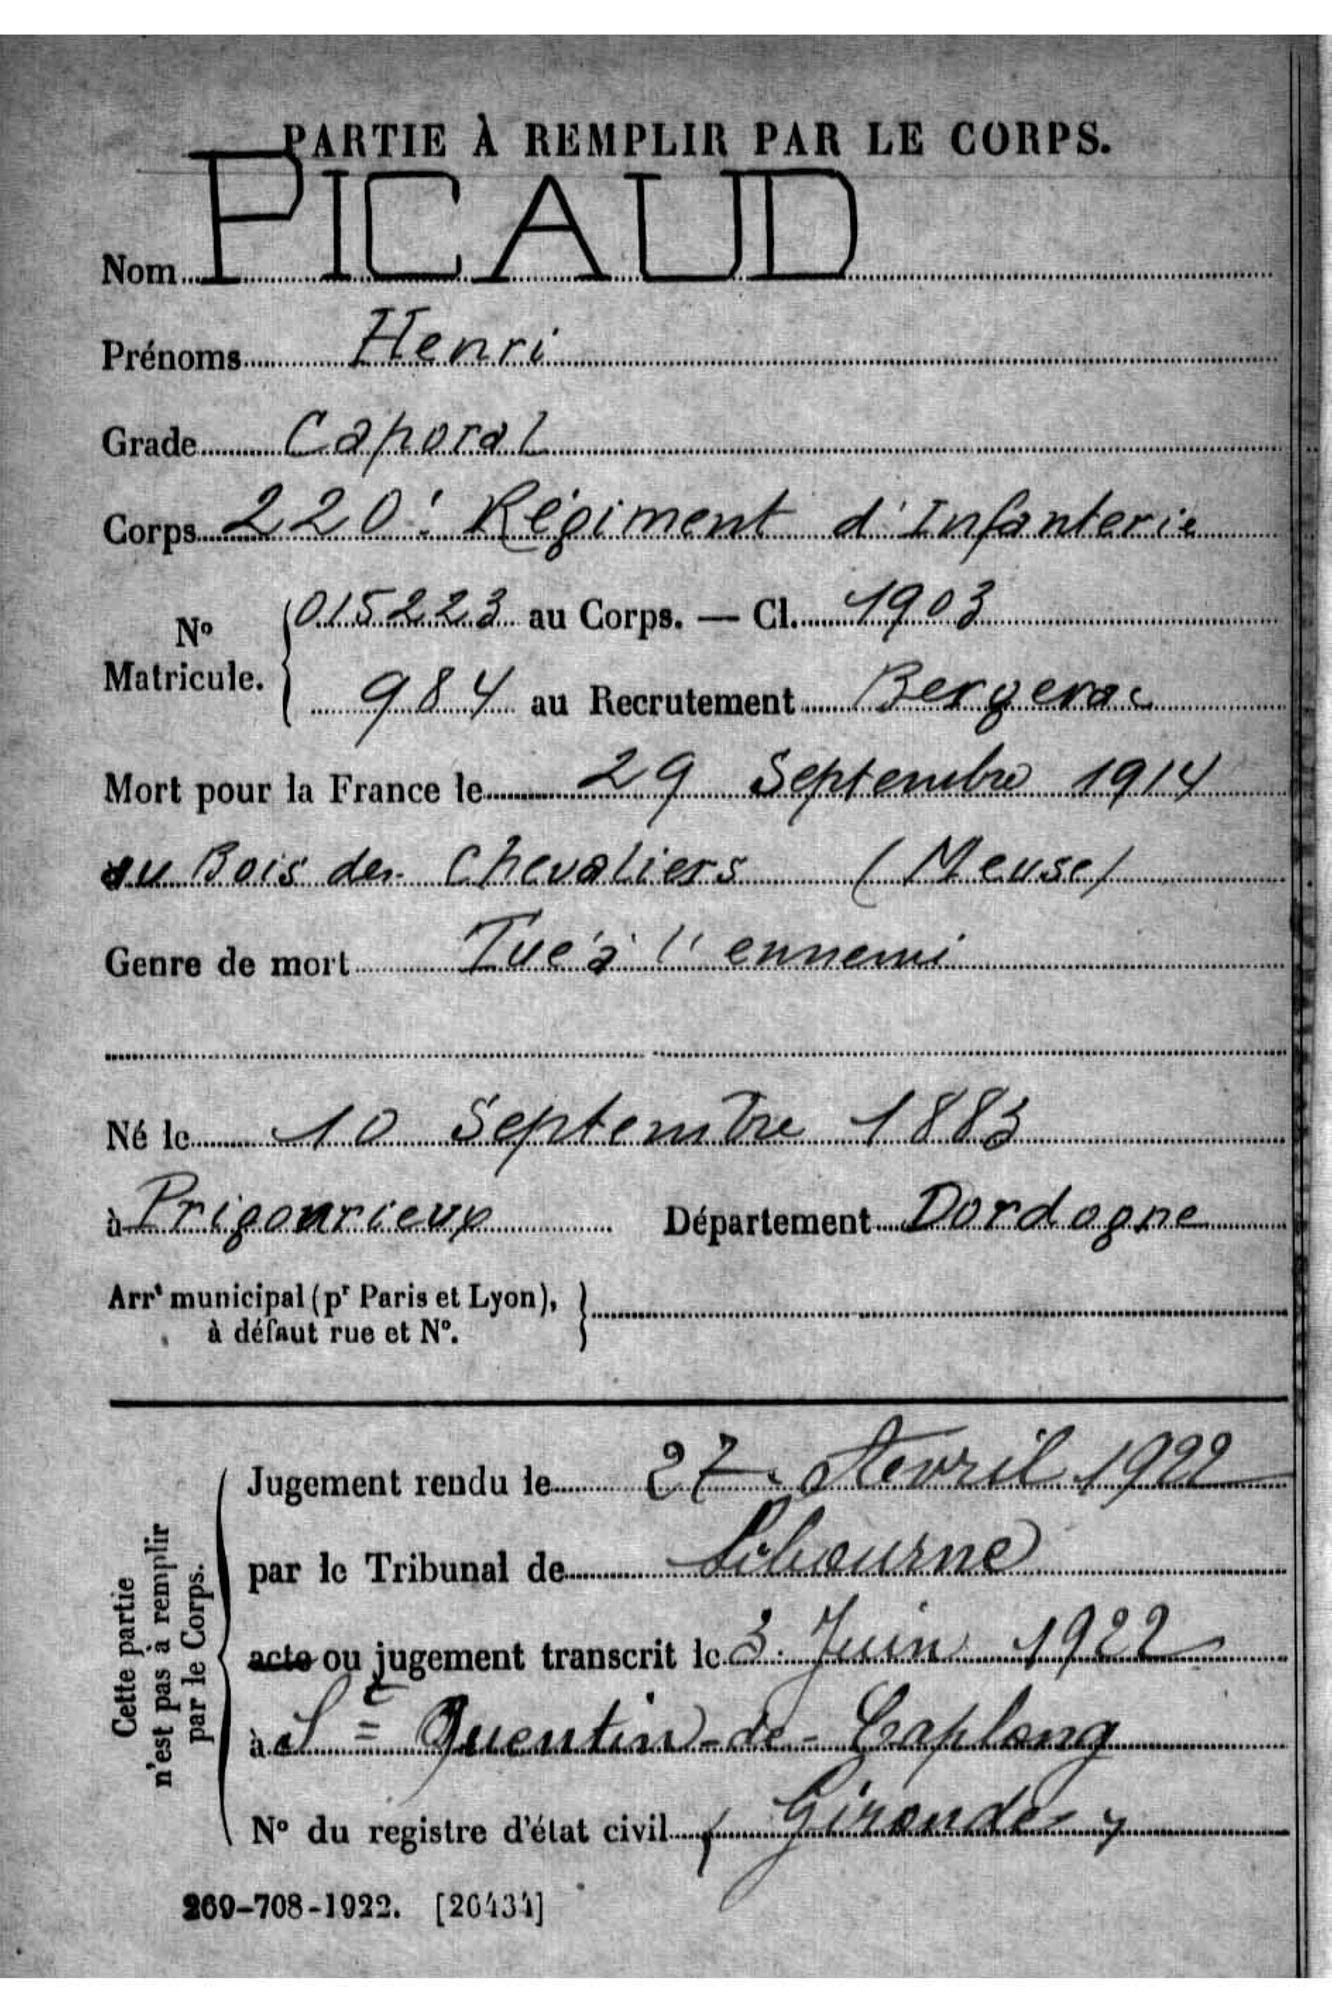 PARTIE À REMPLIR PAR LE CORPS.
Nom PICAUD
Prénoms Henri
Grade Caporal
Corps 220e Régiment d'Infanterie
No Matricule. { 015223 au Corps. — Cl. 1903
984 au Recrutement Bergerac
Mort pour la France le 29 Septembre 1914
au Bois des Chevaliers (Meuse)
Genre de mort Tué à l'ennemi
Né le 10 Septembre 1883
à Prigonrieux Département Dordogne
Arrt municipal (pr Paris et Lyon),
à défaut rue et No.
Cette partie
n'est pas à remplir
par le Corps.
Jugement rendu le 27 Avril 1922
par le Tribunal de Libourne
acte ou jugement transcrit le 3 Juin 1922
à St Quentin-de-Caplong
No du registre d'état civil (Gironde)
269-708-1922. [26434]